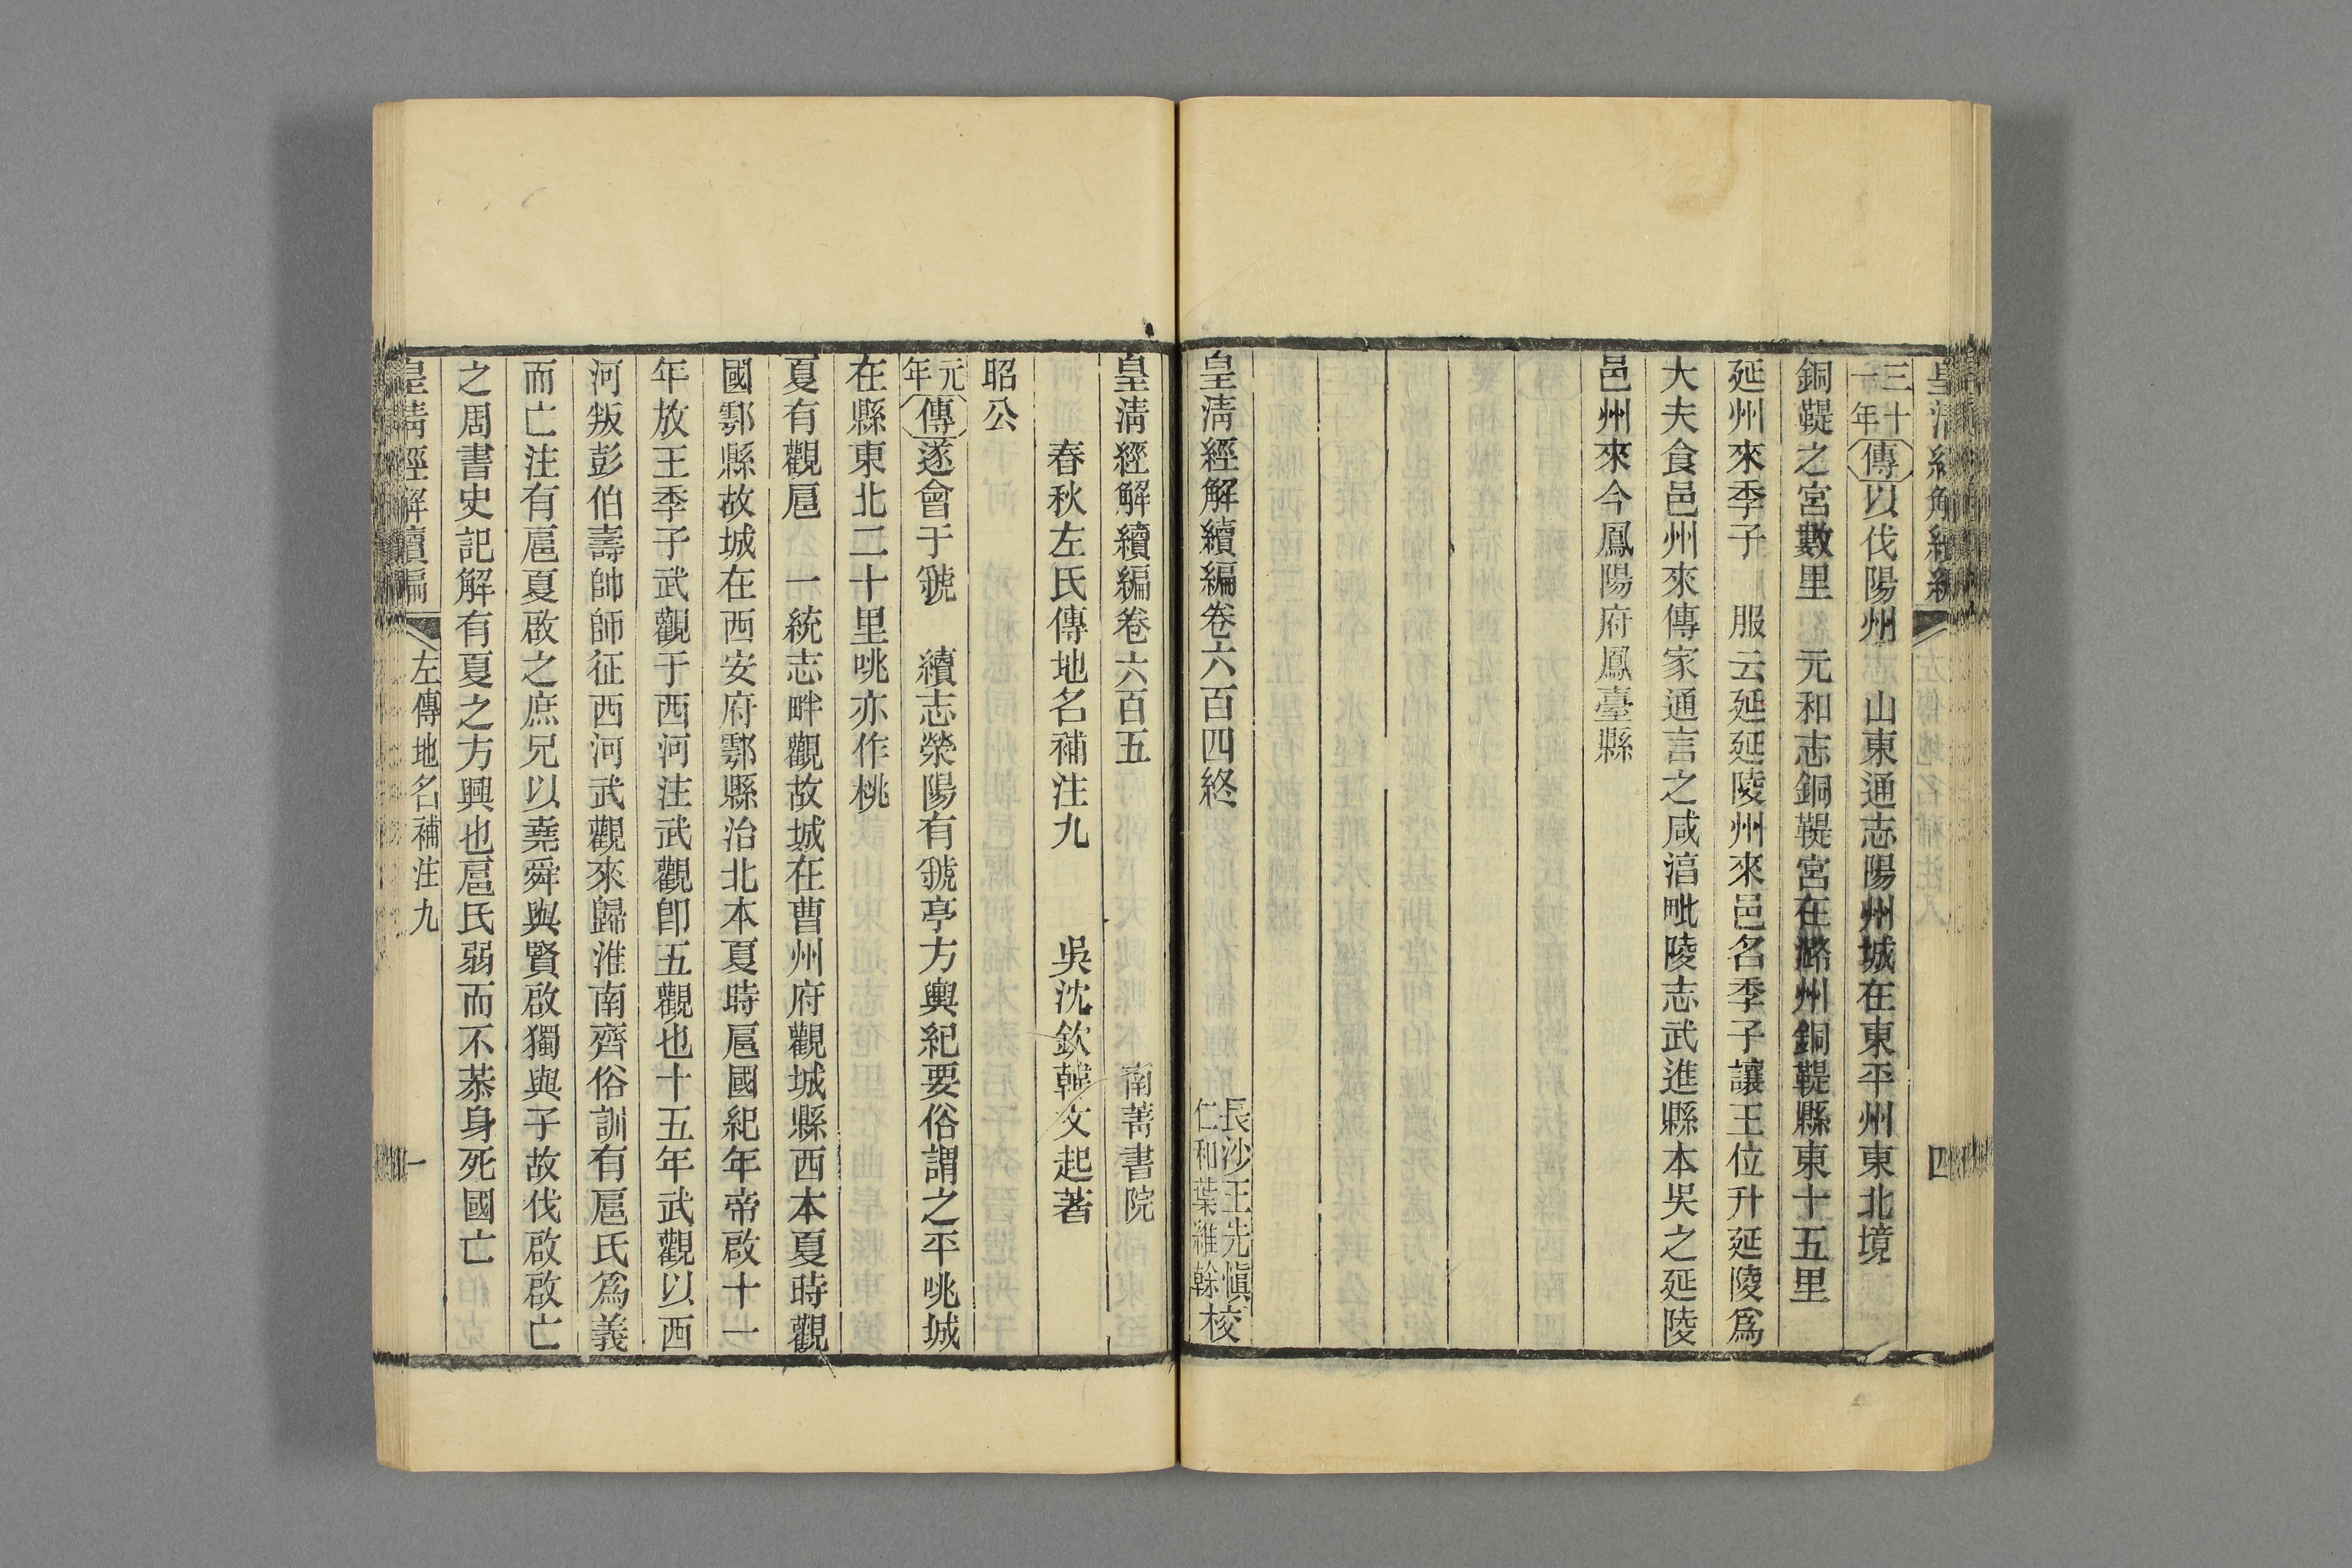 三十一年傳以伐陽州　山東通志陽州城在東平州東北境
銅鞮之宮數里　元和志銅鞮宮在潞州銅鞮縣東十五里
延州來季子　服云延延陵州來邑名季子讓王位升延陵爲
大夫食邑州來傳家通言之咸淳毗陵志武進縣本吳之延陵
邑州來今鳳陽府鳳臺縣
皇淸經解續編卷六百四終
長沙王先愼
仁和葉維榦校
皇淸經解續編卷六百五　南菁書院
春秋左氏傳地名補注九　吳沈欽韓文起著
昭公
元年傳遂會于虢　續志滎陽有虢亭方輿紀要俗謂之平咷城
在縣東北二十里咷亦作桃
夏有觀扈　一統志畔觀故城在曹州府觀城縣西本夏時觀
國鄠縣故城在西安府鄠縣治北本夏時扈國紀年帝啟十一
年放王季子武觀于西河注武觀卽五觀也十五年武觀以西
河叛彭伯壽帥師征西河武觀來歸淮南齊俗訓有扈氏爲義
而亡注有扈夏啟之庶兄以堯舜與賢啟獨與子故伐啟啟亡
之周書史記解有夏之方興也扈氏弱而不恭身死國亡
皇淸經解續編　左傳地名補注九　一